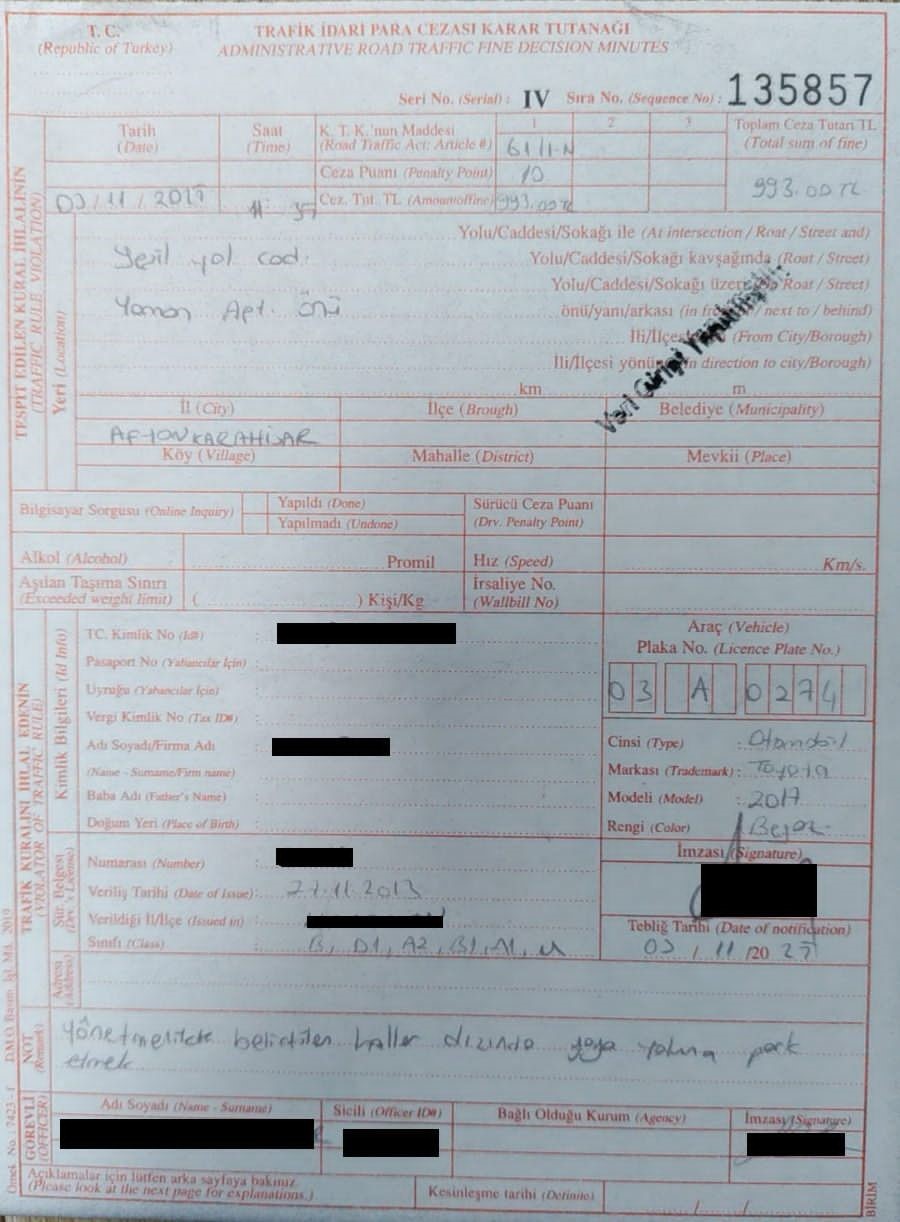 T. C.
(Republic of Turkey)
TRAFİK İDARİ PARA CEZASI KARAR TUTANAĞI
ADMINISTRATIVE ROAD TRAFFIC FINE DECISION MINUTES
Seri No. (Serial) : IV Sıra No. (Sequence No) : 135857
TESPİT EDİLEN KURAL İHLALİNİN
(TRAFFIC RULE VIOLATION)
Yeri (Location)
Tarih
(Date)
Saat
(Time)
K. T. K.'nun Maddesi
(Road Traffic Act: Article #)
1 2 3
61/1-N
Toplam Ceza Tutarı TL
(Total sum of fine)
Ceza Puanı (Penalty Point) 10
Cez. Tut. TL (Amountoffine) 993.00 TL
993.00 TL
03/11/
Yolu/Caddesi/Sokağı ile (At intersection / Roat / Street and)
Yeşil yol cad. Yolu/Caddesi/Sokağı kavşağında (Roat / Street)
Yolu/Caddesi/Sokağı (Roat / Street)
Apt. önü önü/yanı/arkası (in / next to / behind)
(From City/Borough)
İli/İlçesi (in direction to city/Borough)
km m
Veri Girişi Yapılmıştır.
İl (City) İlçe (Brough) Belediye (Municipality)
AFYONKARAHİSAR
Köy (Village) Mahalle (District) Mevkii (Place)
Bilgisayar Sorgusu (Online Inquiry) Yapıldı (Done)
Yapılmadı (Undone)
Sürücü Ceza Puanı
(Drv. Penalty Point)
Alkol (Alcohol) Promil Hız (Speed) Km/s.
Aşılan Taşıma Sınırı
(Exceeded weight limit) ( ) Kişi/Kg
İrsaliye No.
(Wallbill No)
TRAFİK KURALINI İHLAL EDENİN
(VIOLATOR OF TRAFFIC RULE)
Kimlik Bilgileri (Id Info)
TC. Kimlik No (Id#) :
Pasaport No (Yabancılar İçin) :
Uyruğu (Yabancılar İçin) :
Vergi Kimlik No (Tax ID#) :
Adı Soyadı/Firma Adı :
(Name - Surname/Firm name) :
Baba Adı (Father's Name) :
Doğum Yeri (Place of Birth) :
Araç (Vehicle)
Plaka No. (Licence Plate No.)
03 A 0274
Cinsi (Type) : Otomobil
Markası (Trademark) : Toyota
Modeli (Model) : 2017
Rengi (Color) : Beyaz
İmzası (Signature)
Tebliğ Tarihi (Date of notification)
03 / 11 /20
Sür. Belgesi
(Drv.'s License)
Numarası (Number) :
Veriliş Tarihi (Date of Issue) : 27.11.2013
Verildiği İl/İlçe (Issued in) :
Sınıfı (Class) : B, D1, A2, B1, A1, M
Adresi
(Address)
NOT
(Remark)
Yönetmelikte belirtilen haller dızında yaya yoluna park
etmek
GÖREVLİ
(OFFICER)
Adı Soyadı (Name - Surname) Sicili (Officer ID#) Bağlı Olduğu Kurum (Agency) İmzası (Signature)
Açıklamalar için lütfen arka sayfaya bakınız
(Please look at the next page for explanations.)
Kesinleşme tarihi (Definite) / /
BİRİM
Örnek No. : 7423 - f DMO Basım. İşl. Md. 2019